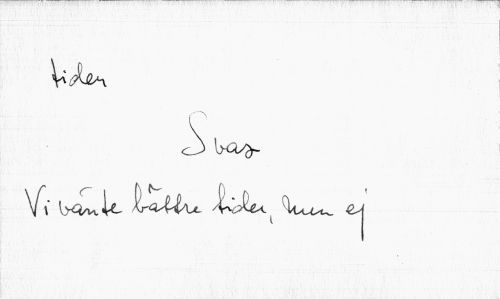 tiden
Svar
Vi vänte bättre tider, men ej